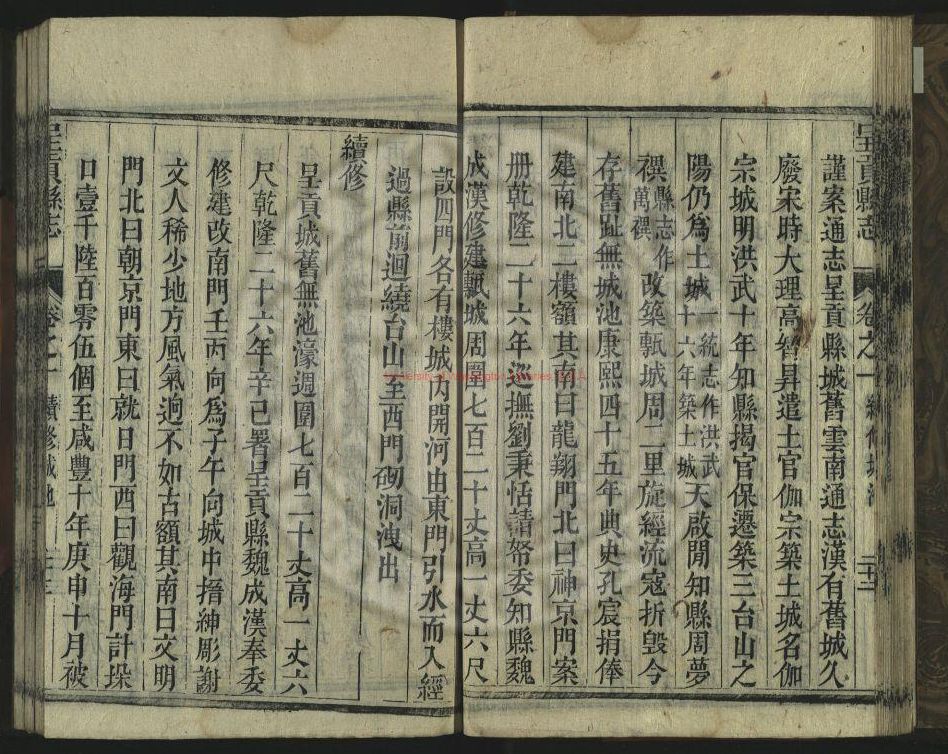 呈貢縣志
卷之一
二十二
謹案通志呈貢縣城舊雲南通志漢有舊城久
廢宋時大理高智昇遣土官伽宗築土城名伽
宗城明洪武十年知縣揭官保遷築三台山之
陽仍為土城一統志作洪武十六年築土城天啟間知縣周夢
禩縣志作萬禩改築甎城周二里旋經流寇折毀今
存舊趾無城池康熙四十五年典史孔宸捐俸
建南北二樓額其南曰龍翔門北曰神京門案
册乾隆二十六年巡撫劉秉恬請帑委知縣魏
成漢修建甎城周圍七百二十丈高一丈六尺
設四門各有樓城內開河由東門引水而入經
過縣前迴繞台山至西門砌洞洩出
續修
呈貢城舊無池濠週圍七百二十丈高一丈六
尺乾隆二十六年辛巳署呈貢縣魏成漢奉委
修建改南門壬丙向為子午向城中搢紳彫謝
文人稀少地方風氣逈不如古額其南曰文明
門北曰朝京門東曰就日門西曰觀海門計垜
口壹千陸百零伍個至咸豐十年庚申十月被
呈貢縣志
卷之一
續修城池